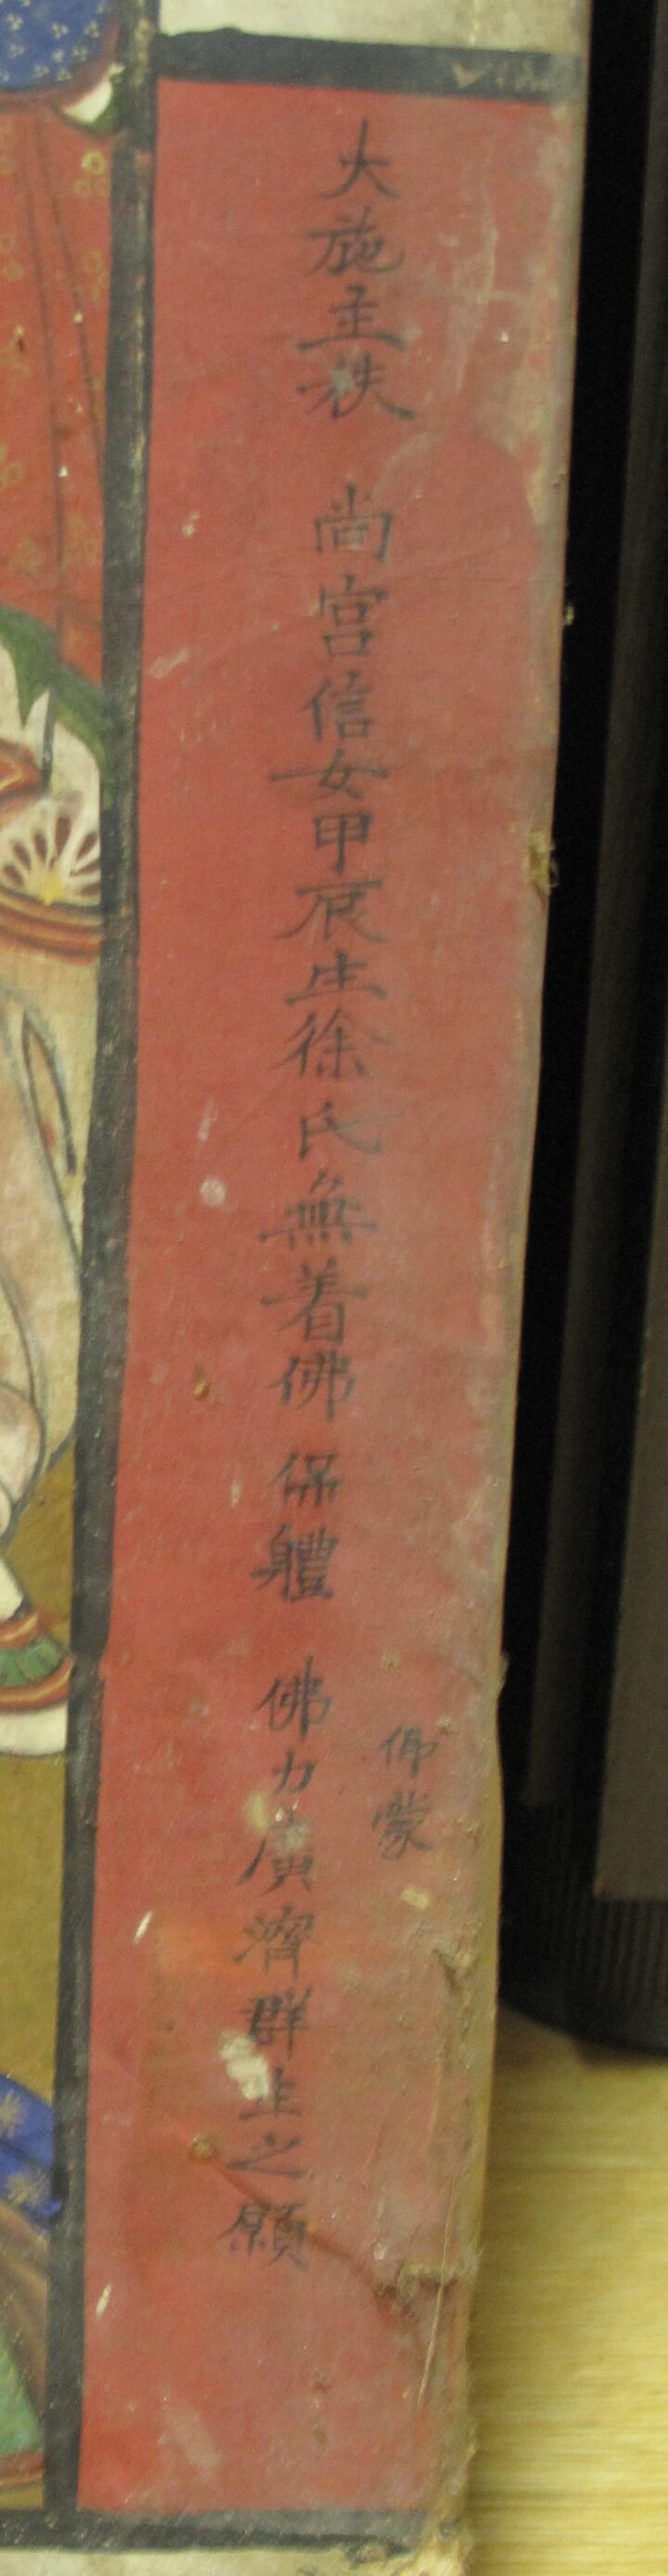 大施主秩 尚宮信女甲辰生徐氏無着佛 保軆
仰蒙
佛力廣濟群生之願